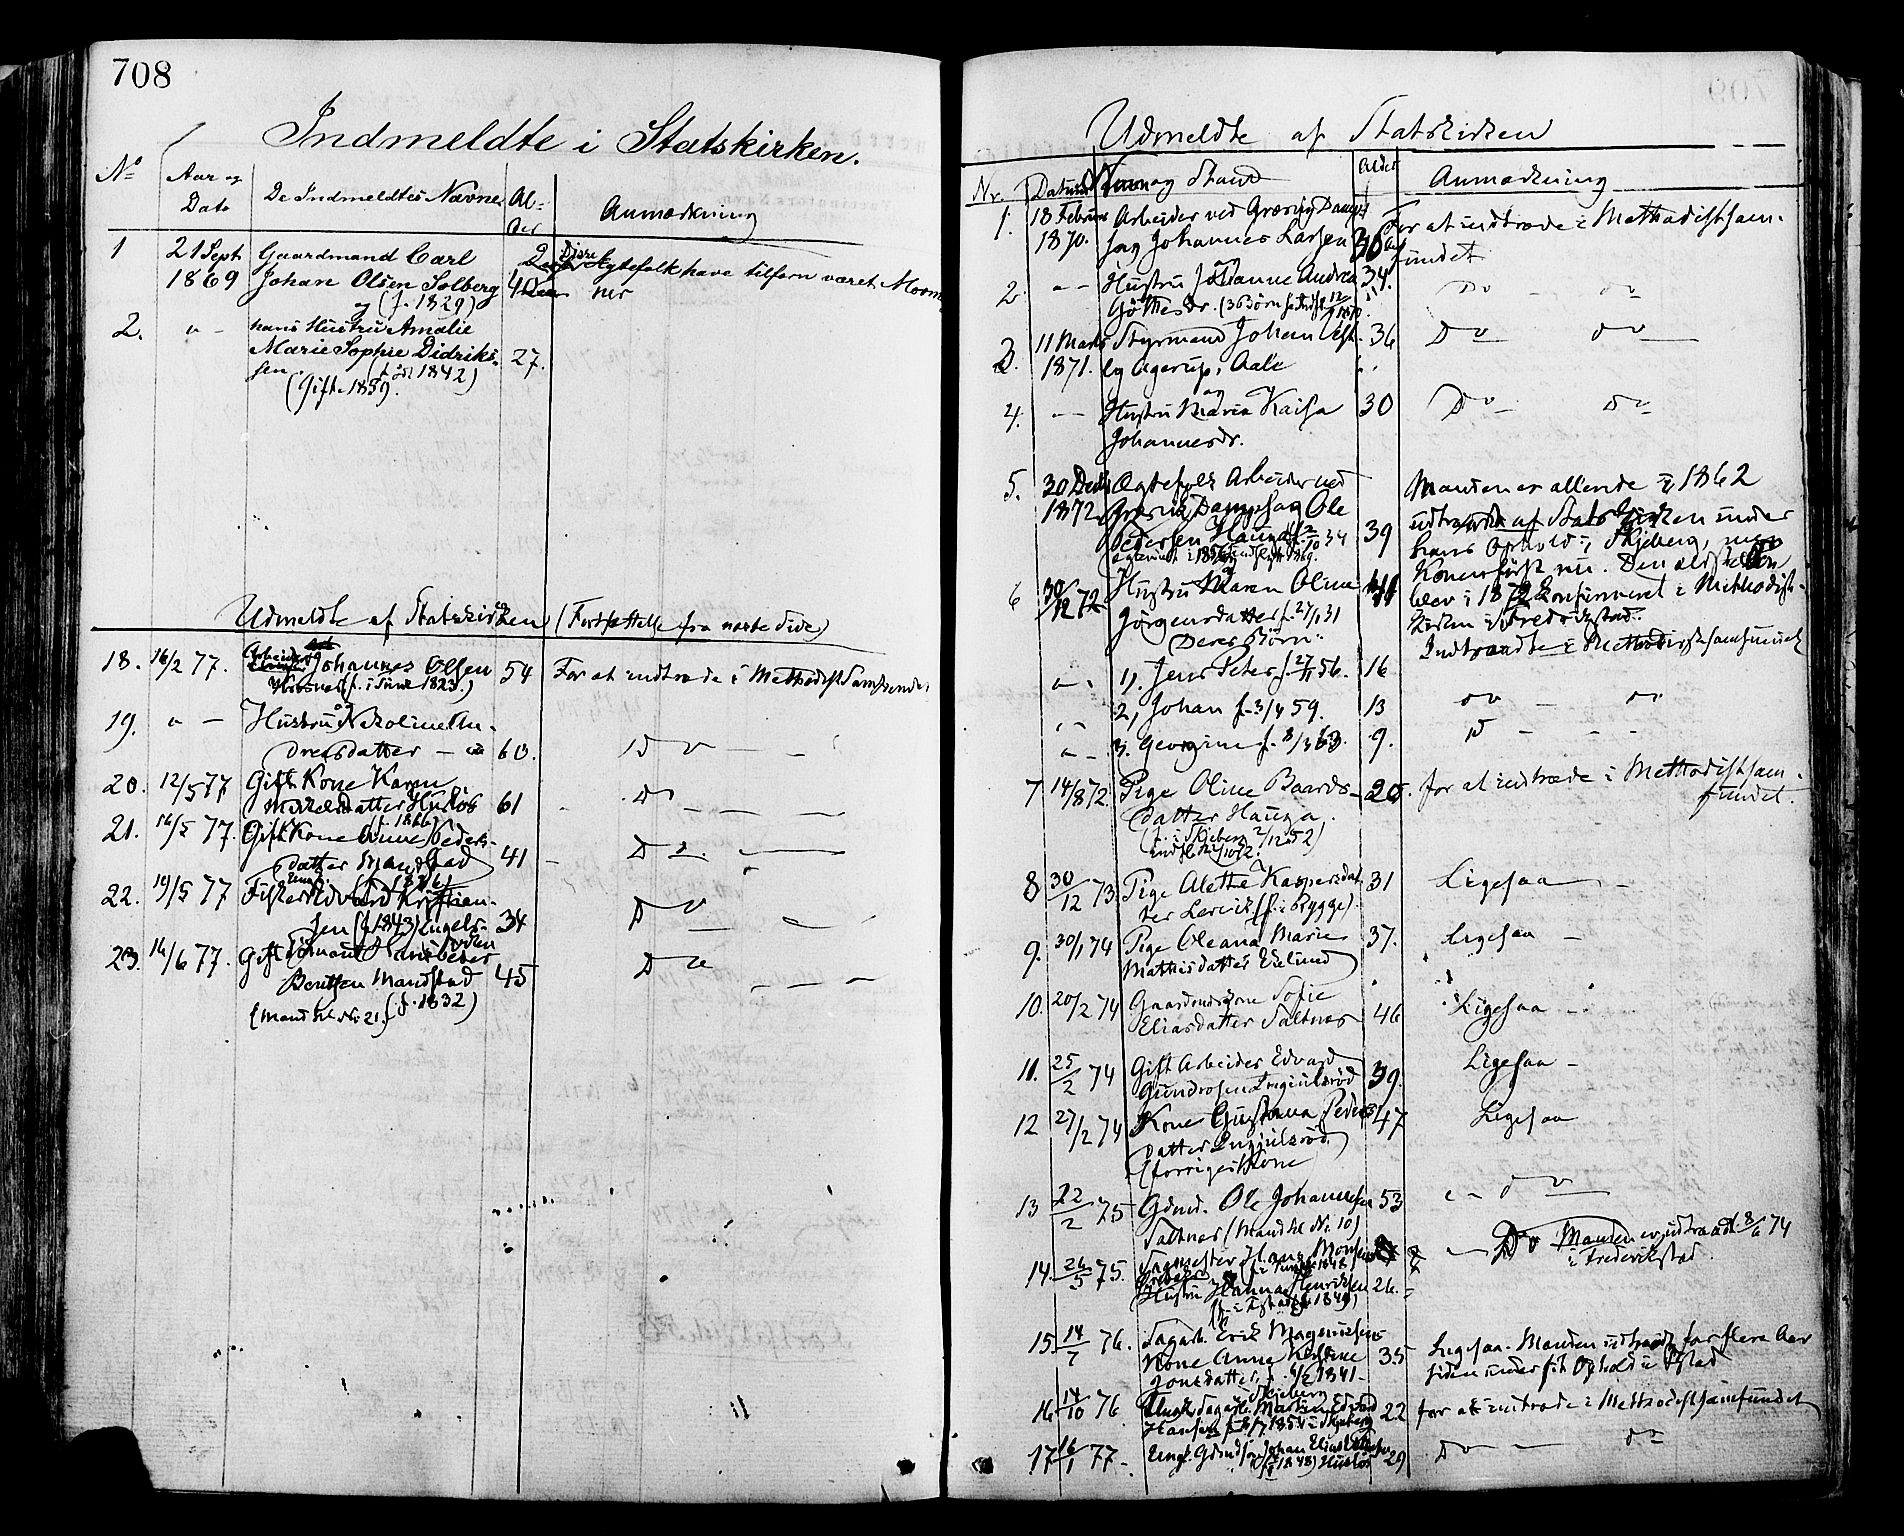 708
Indmeldte i Statskirken.
No
Aar og
Dato
De Indmeldtes Navne
Al-
der
Anmærkning
1
21 Sept
1869
Gaardmand Carl
Johan Olsen Solberg
og (f. 1829)
40
Disse Ægtefolk have tilforn været Mormo
ner
2.
" -
hans Hustru Amalie
Marie Sophie Didriks-
sen (f. 1842)
(Gift 1859).
27.
Udmeldte af Statskirken (Fortsættelse fra næste Side)
18. 16/2 77.
Arbeider
Johannes Olsen
(f. i Juni 1823.)
54
For at indtræde i MethodistSamfundet
19. " -
Hustru Nekoline An-
dreasdatter
60.
Do - -
20. 12/5 77
Gift Kone Karen
datter Huslos
61
Do - -
21. 16/5 77.
Gift Kone Anne Peders-
datter Mandstad
41 -
Do. -
22. 19/5 77
Fisker Edvard Kristian-
sen (f. 1843) Engels-
viken
34
Do - -
23. 14/6 77.
Gift Hans Peder
Berntsen Mandstad
(Mand til No 21.) (f. 1832)
45
Do - - -
Udmeldte af Statskirken
Nr.
Datum
Navn og Stand
Alder
Anmærkning
1.
18 Februar
1870.
Arbeider ved Græsvig Damp-
sag Johannes Larsen
36
For at indtræde i Methodistsam-
fundet
2.
" -
Hustru Johanne Andrea
34.
Do - Do
3.
11 Marts
1871.
Styrmand Johan
Agerup, Aale
og
36
Do - Do
4.
" -
Hustru Maria Kaisa
Johannesdr.
30
Do - Do
5.
30 Decbr
1872
Ægtefolk Arbeider ved
Græsvik Dampsag Ole
Pedersen Hauga f. 2/10 34
39
Manden er allerede i 1862
udtraadt af Stats Kirken under
hans Ophold i Skjeberg, men
Konen først nu. Den ældste Søn
blev i 1872 konfirmeret i Methodist-
kirken i Fredrikstad.
6
30/12 72
Hustru Maren Oline
Jørgensdatter f. 27/1 31
Deres Børn:
41
Indtraadte i Methodistsamfundet
" -
1). Jens Peter f. 27/11 56.
16
" -
2, Johan f. 3/4 59.
13
Do - Do
" -
3. Georgine f. 8/3 63.
9.
D - - -
7 14/8 72.
Pige Oline Baards-
datter Hauga.
(f. i Skjeberg 2/12 52)
20.
for at indtræde i Methodistsam-
fundet.
8
30/12 73.
Pige Alette Kaspersdat-
ter Lervik (f. i Rygge).
31
Ligesaa -
9.
30/1 74
Pige Oleana Marie
Mathisdatter Evelund
37.
Ligesaa -
10.
20/2 74
Gaardmdskone Sofie
Eliasdatter Saltnes
46
Ligesaa - -
11.
25/2 74
Gift Arbeider Edvard
Gundrosen Engjulsrød
39.
Ligesaa -
12
27/2 74
Kone Gustava Peders
datter Engjulsrød
(forriges Kone)
47
Ligesaa
13
22/2 75
Gdmd. Ole Johannesen
Saltnes (Mand til No. 10)
53
" - do
14.
26/5 75.
Sagmester Hans Monsen
Hustru Hanna Henriksen
26.
- Do Manden er udtraadt 8/6 74
i Frederikstad
15.
14/7 76.
Sagarb. Erik Magnussens
Kone Anne Kirstine
Jonsdatter, f. 4/2 1841-
35
Ligesaa. Manden udtraadt for flere Aar
siden under sit Ophold i Fstad
16
14/10 76
Skjeberg
Ungk. Sagarb. Martin Edvard
Hansen f. 8/7 1854 i Skjeberg
22
for at indtræde i Methodistsamfundet
17
16/1 77 -
Ungk. Gdmdsøn Johan Elias
1848) Huslos
29
Do - Do